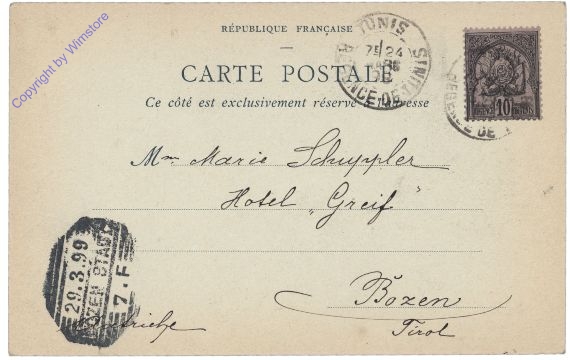 RÉPUBLIQUE FRANÇAISE
CARTE POSTALE
Ce côté est exclusivement réservé à l'adresse
TUNIS
RÉGENCE DE TUNIS
10
RÉGENCE DE
Mme Marie Schuppler
Hotel „Greif"
Bozen
Tirol
29.3.99
BOZEN STADT
7.F
Copyright by Wimstore